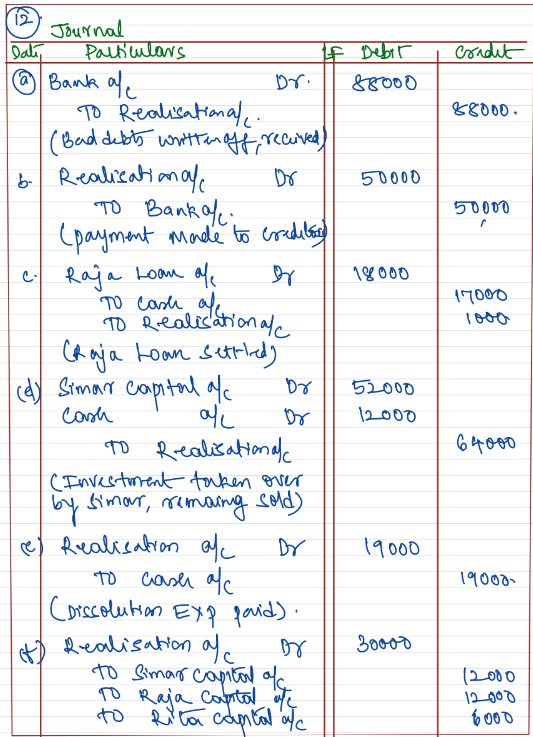 12 Journal
Date Particulars LF Debit Credit
(a) Bank a/c Dr. 88000
TO Realisation a/c. 88000.
(Bad debts written off, received)
b. Realisation a/c Dr 50000
TO Bank a/c. 50000
(payment made to creditors)
c. Raja Loan a/c Dr 18000
TO Cash a/c 17000
TO Realisation a/c 1000
(Raja Loan Settled)
(d) Simar capital a/c Dr 52000
Cash a/c Dr 12000
TO Realisation a/c 64000
(Investment taken over
by Simar, remaing sold)
(e) Realisation a/c Dr 19000
TO Cash a/c 19000.
(Dissolution EXP paid).
(f) Realisation a/c Dr 30000
TO Simar Capital a/c 12000
TO Raja Capital a/c 12000
TO Rita capital a/c 6000